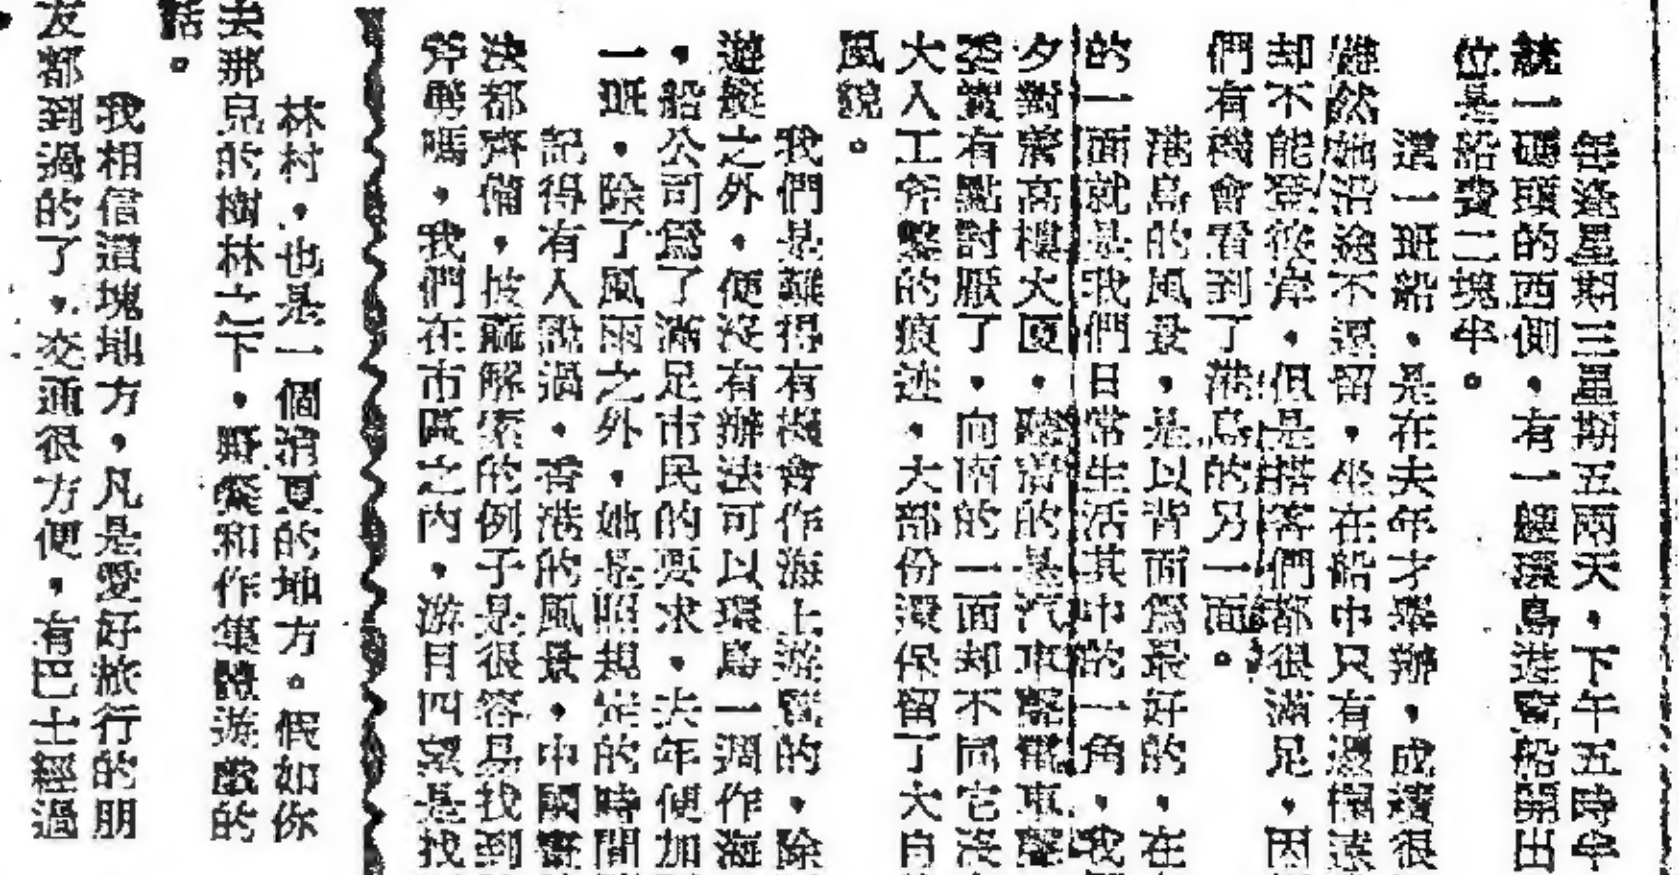 每逢星期三星期五兩天，下午五時半
統一碼頭的西側，有一艘環島遊覽船開出
位是船費二塊半。
這一班船，是在去年才舉辦，成績很
雖然她沿途不逗留，坐在船中只有浪
却不能登彼岸，但是搭客們都很滿足，因
們有機會看到了港島的另一面。
港島的風景，是以背面為最好的，在
的一面就是我們日常生活其中的一角，我
夕對着高樓大厦，聽的是汽車聲電車聲
委實有點討厭了，向南的一面却不同它沒
大人工斧鑿的痕迹，大部份還保留了大自
風貌。
我們是難得有機會作海上遊覽的，除
遊艇之外，便沒有辦法可以環島一週作海
，船公司為了滿足市民的要求，去年便加
一班，除了風雨之外，她是照規定的時間
記得有人說過，香港的風景，中國畫
決都齊備，披麻解索的例子是很容易找到
斧劈嗎，我們在市區之內，游目四望是找
林村，也是一個消夏的地方。假如你
去那兒的樹林之下，野餐和作集體遊戲的
話。
我相信這塊地方，凡是愛好旅行的朋
友都到過的了，交通很方便，有巴士經過